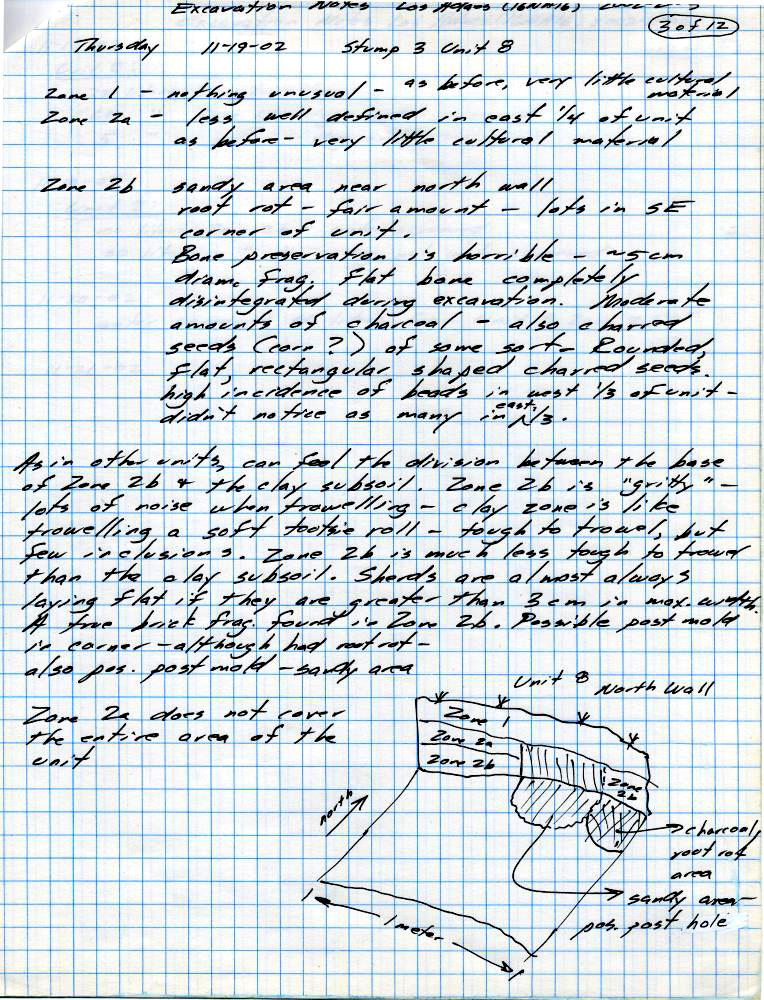 Excavation Notes Los Adaes (16NA16)
3 of 12
Thursday 11-19-02 Stump 3 Unit 8
Zone 1 - nothing unusual - as before, very little cultural
material
Zone 2a - less well defined in east 1/4 of unit
as before - very little cultural material
Zone 2b sandy area near north wall
root rot - fair amount - lots in SE
corner of unit.
Bone preservation is horrible - ~5cm
diam. frag. flat bone completely
disintegrated during excavation. Moderate
amounts of charcoal - also charred
seeds (corn?) of some sort - Rounded,
flat, rectangular shaped charred seeds.
high incidence of beads in west 1/3 of unit -
didn't notice as many in east 1/3.
As in other units, can feel the division between the base
of Zone 2b & the clay subsoil. Zone 2b is "gritty" -
lots of noise when trowelling - clay zone is like
trowelling a soft tootsie roll - tough to trowel, but
few inclusions. Zone 2b is much less tough to trowel
than the clay subsoil. Sherds are almost always
laying flat if they are greater than 3cm in max. width.
A true brick frag. found in Zone 2b. Possible post mold
in corner - although had root rot -
also pos. post mold - sandy area
Zone 2a does not cover
the entire area of the
unit
Unit 8 North Wall
Zone 1
Zone 2a
Zone 2b
Zone
2b
north
charcoal,
root rot
area
sandy area -
pos. post hole
1 meter